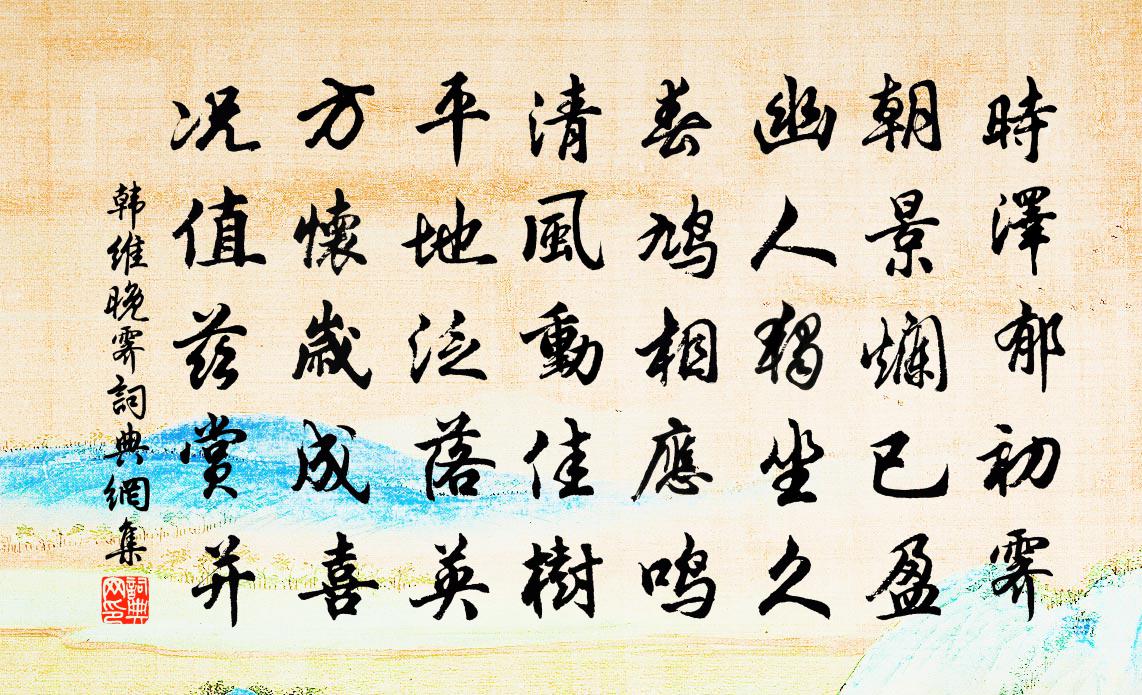 時澤郁初霽
朝景爛已盈
幽人獨坐久
春鳩相應鳴
清風動佳樹
平地泛落英
方懷歲成喜
况值茲賞并
韩維晚霽詞典網集
詞典網印